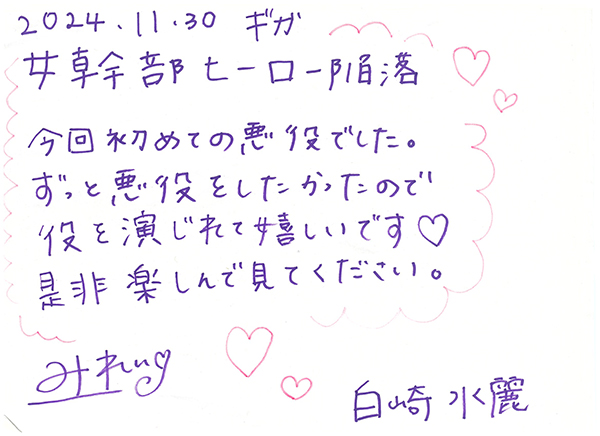 2024.11.30 ギガ
女幹部ヒーロー陥落
今回初めての悪役でした。
ずっと悪役をしたかったので
役を演じれて嬉しいです♡
是非楽しんで見てください。
みれい♡
白崎水麗